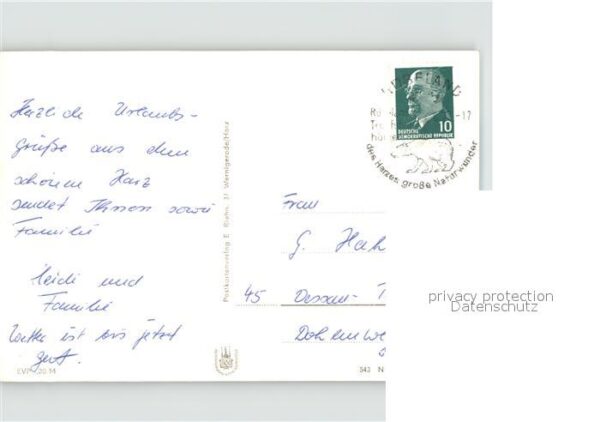 Herzliche Urlaubs-
grüße aus dem
schönen Harz
sendet Ihnen sowie
Familie
Heidi und
Familie
Wetter ist bis jetzt
gut.
EVP
Postkartenverlag E. Riehn, 37 Wernigerode/Harz
RÜBELAND
-17
des Harzes große Naturwunder
DEUTSCHE
DEMOKRATISCHE REPUBLIK
10
Frau
G. Hah
45 Dessau-
543 N
privacy protection
Datenschutz